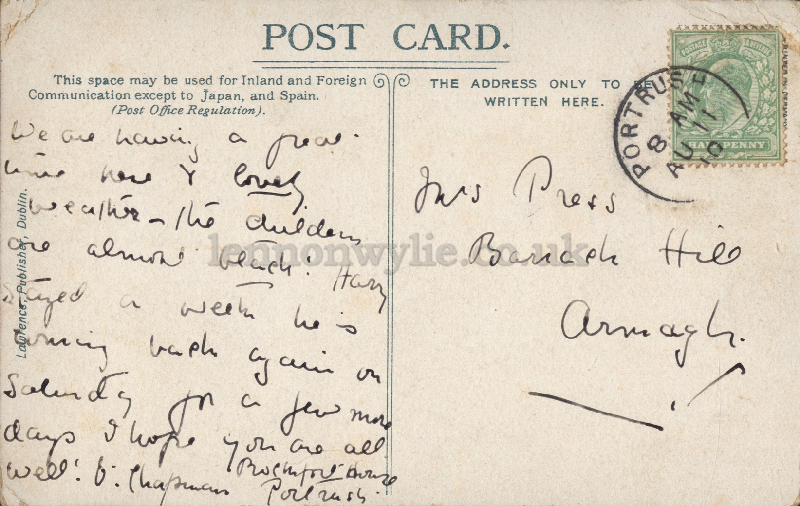 POST CARD.
This space may be used for Inland and Foreign
Communication except to Japan, and Spain.
(Post Office Regulation).
THE ADDRESS ONLY TO BE
WRITTEN HERE.
POSTAGE REVENUE
HALFPENNY
PORTRUSH
8 AM
AU 11
10
We are having a great
time here & lovely
weather - the children
are almost black! Harry
stayed a week he is
coming back again on
Saturday for a few more
days I hope you are all
well! Chapman
House
Portrush.
Mrs Press
Barrack Hill
Armagh.
Lawrence, Publisher, Dublin.
lennonwylie.co.uk